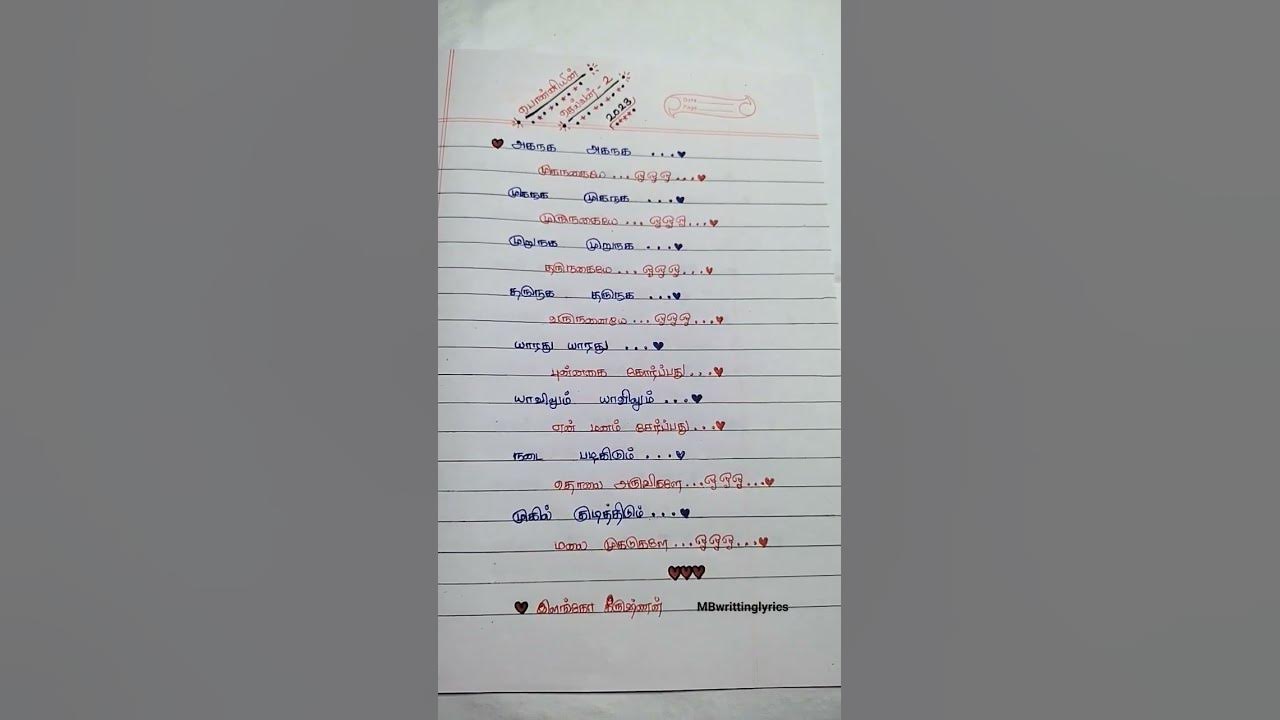 பொன்னியின்
செல்வன் - 2
2023
Date
Page
அகநக அகநக ...
முகநகையே ... ஓஓஓ...
முகநக முகநக ...
முருநகையே ... ஓஓஓ...
முறுநக முறுநக ...
தருநகையே ... ஓஓஓ...
தருநக தருநக ...
வருநனையே ... ஓஓஓ...
யாரது யாரது ...
புன்னகை கோர்ப்பது...
யாவிலும் யாவிலும் ...
என் மனம் சேர்ப்பது...
நடை படிகிடும் ...
தொலை அருவிகளே...ஓஓஓ...
முகில் குடித்திடும் ...
மலை முகடுகளே...ஓஓஓ...
இளங்கோ கிருஷ்ணன் MBwrittinglyrics